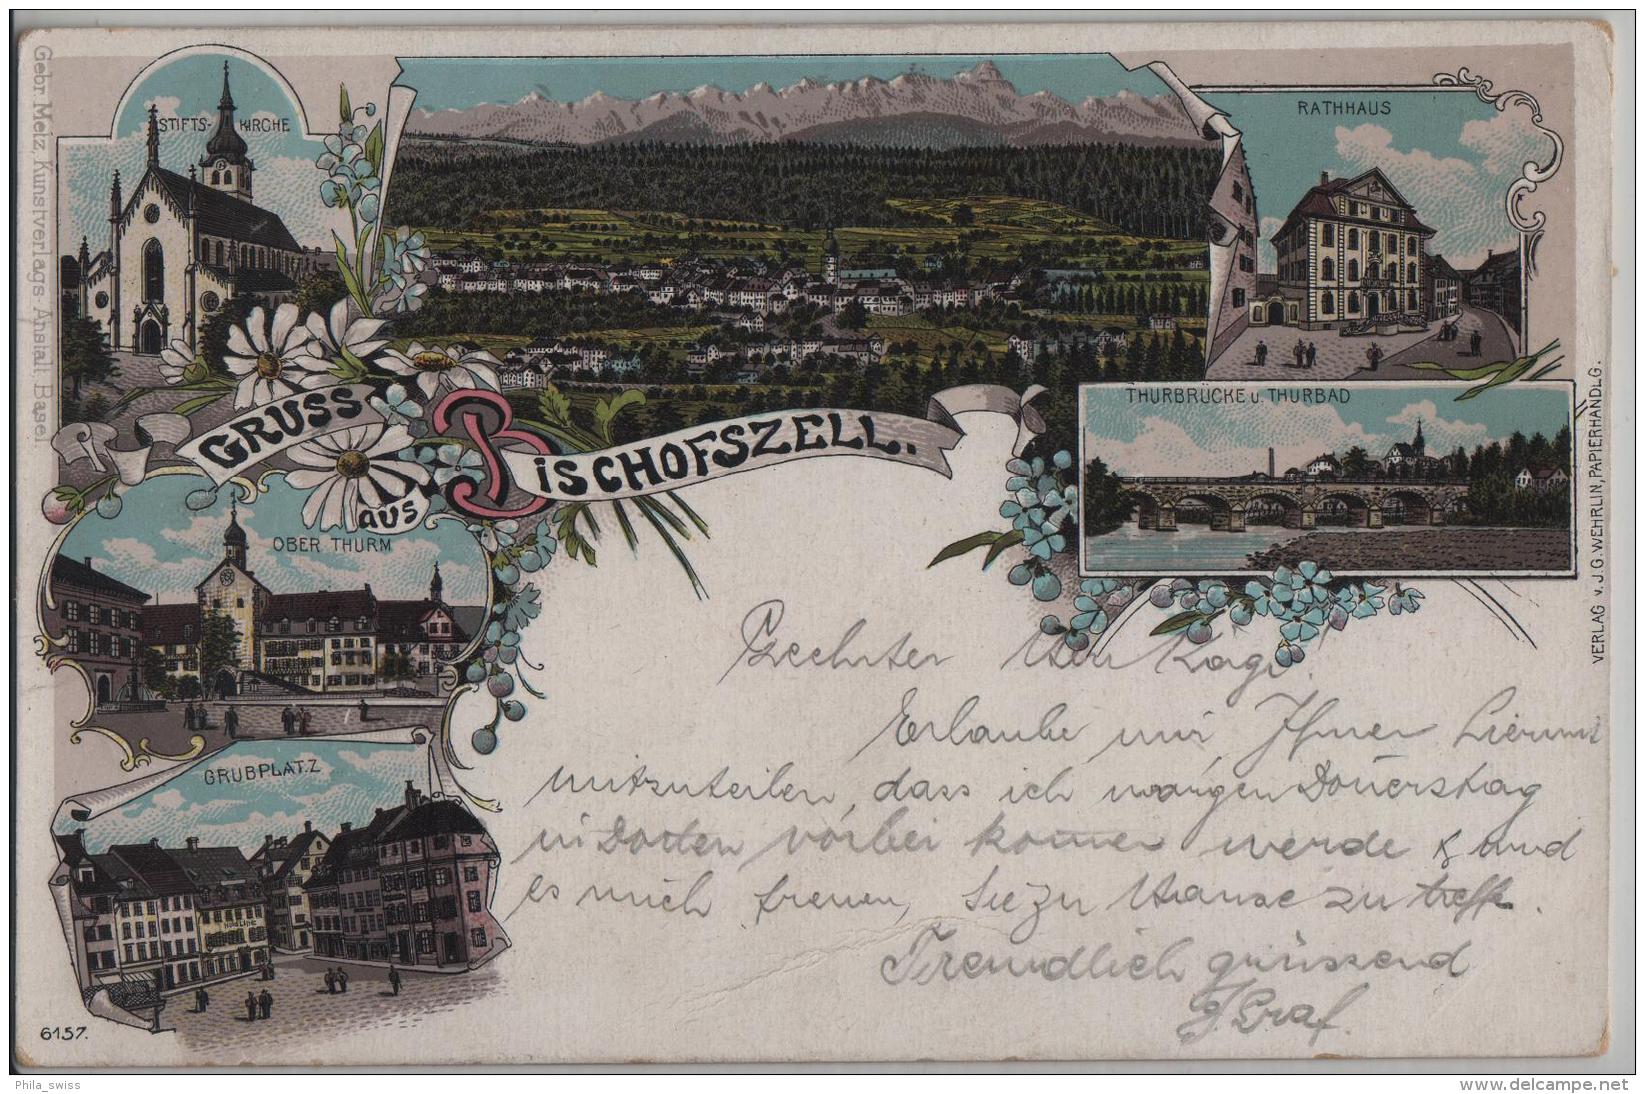 Gebr. Metz, Kunstverlags-Anstalt Basel.
STIFTS- KIRCHE
RATHHAUS
THURBRÜCKE u. THURBAD
GRUSS
AUS
BISCHOFSZELL.
OBER THURM
GRUBPLATZ
VERLAG v. J.G. WEHRLIN, PAPIERHANDLG.
Geehrter Herr Kägi!
Erlaube mir, Ihnen hiermit
mitzuteilen, dass ich morgen Donnerstag
in vorbei kommen werde &
es mich freuen, Sie zu Hause zu treffen.
Freundlich grüssend
J Graf.
6157.
Phila_swiss
www.delcampe.net